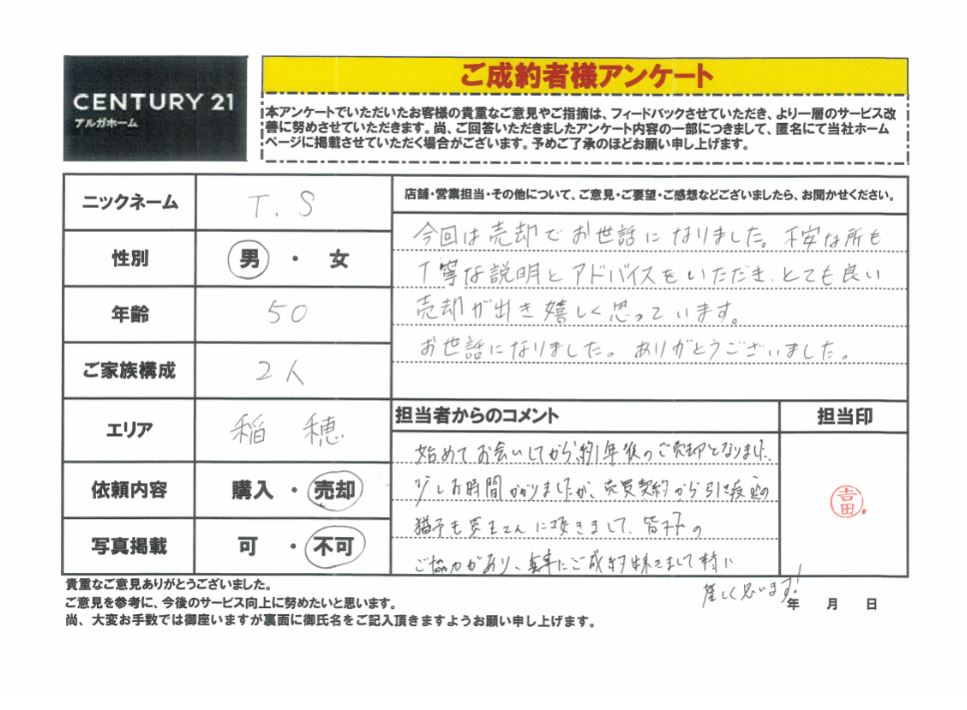 CENTURY 21
アルガホーム
ご成約者様アンケート
本アンケートでいただいたお客様の貴重なご意見やご指摘は、フィードバックさせていただき、より一層のサービス改
善に努めさせていただきます。尚、ご回答いただきましたアンケート内容の一部につきまして、匿名にて当社ホーム
ページに掲載させていただく場合がございます。予めご了承のほどお願い申し上げます。
ニックネーム T.S
性別 男 ・ 女
年齢 50
ご家族構成 2人
エリア 稲穂
依頼内容 購入 ・ 売却
写真掲載 可 ・ 不可
店舗・営業担当・その他について、ご意見・ご要望・ご感想などございましたら、お聞かせください。
今回は売却でお世話になりました。不安な所も
丁寧な説明とアドバイスをいただき、とても良い
売却が出き嬉しく思っています。
お世話になりました。ありがとうございました。
担当者からのコメント 担当印
始めてお会いしてから約1年後のご売却となりました。
少しお時間かかりましたが、売買契約から引き渡しの
猶予も買主さんに頂きまして、皆様の
ご協力があり、無事にご成約 まして特に
嬉しく思います!
吉田
貴重なご意見ありがとうございました。
ご意見を参考に、今後のサービス向上に努めたいと思います。
尚、大変お手数では御座いますが裏面に御氏名をご記入頂きますようお願い申し上げます。
年 月 日